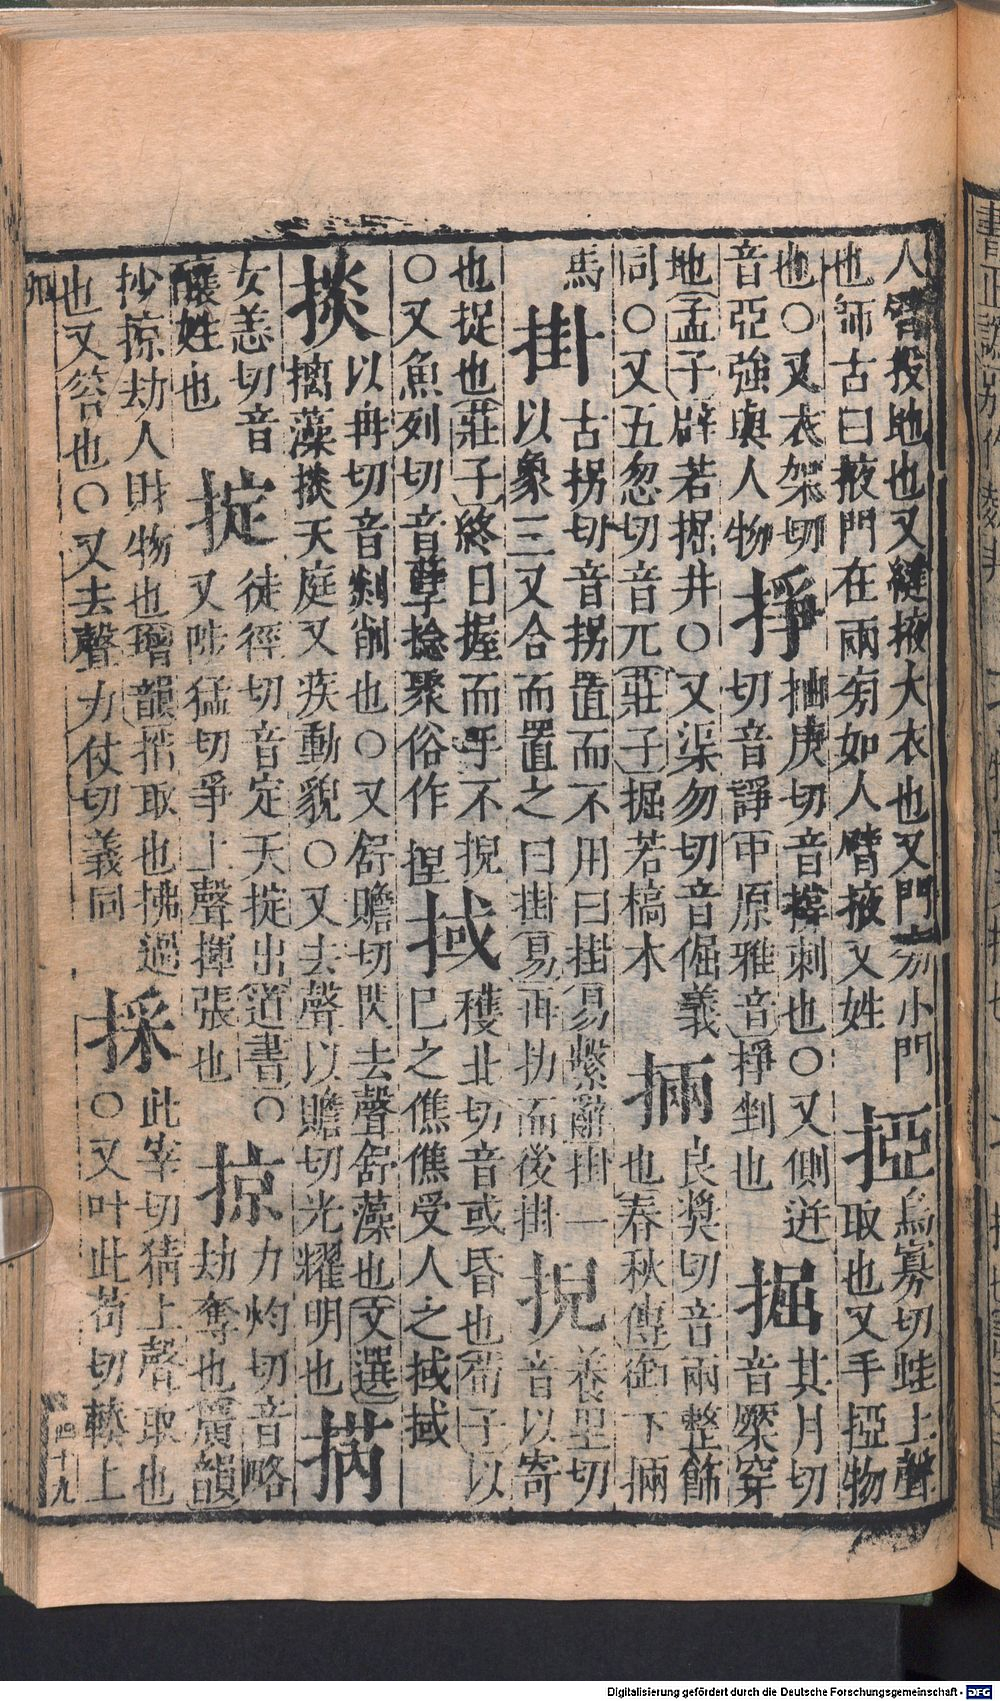 人臂投地也又縫掖大衣也又門旁小門
也師古曰掖門在兩旁如人臂掖又姓
掗
烏寡切蛙上聲
取也又手掗物
也〇又衣架切
音亞強與人物
掙
抽庚切音撐刺也〇又側迸
切音諍中原雅音掙剉也
掘
其月切
音橜穿
地孟子辟若掘井〇又渠勿切音倔義
同〇又五忽切音兀莊子掘若槁木
掚
良獎切音兩整飾
也春秋傳御下掚
馬
掛
古拐切音拐置而不用曰掛易繫辭掛一
以象三又合而置之曰掛易再扐而後掛
掜
養里切
音以寄
也捉也莊子終日握而手不掜
〇又魚列切音孽捻聚俗作揑
掝
穫北切音或昏也荀子以
已之僬僬受人之掝掝
掞
以冉切音剡削也〇又舒贍切閃去聲舒藻也文選
摛藻掞天庭又疾動貌〇又去聲以贍切光耀明也
女恙切音
釀姓也
掟
徒徑切音定天掟出道書〇
又陟猛切爭上聲揮張也
掠
力灼切音略
劫奪也廣韻
抄掠劫人財物也增韻捎取也拂過
也又笞也〇又去聲力仗切義同
採
此宰切猜上聲取也
〇又叶此苟切輳上
卯
四十九
Digitalisierung gefördert durch die Deutsche Forschungsgemeinschaft - DFG